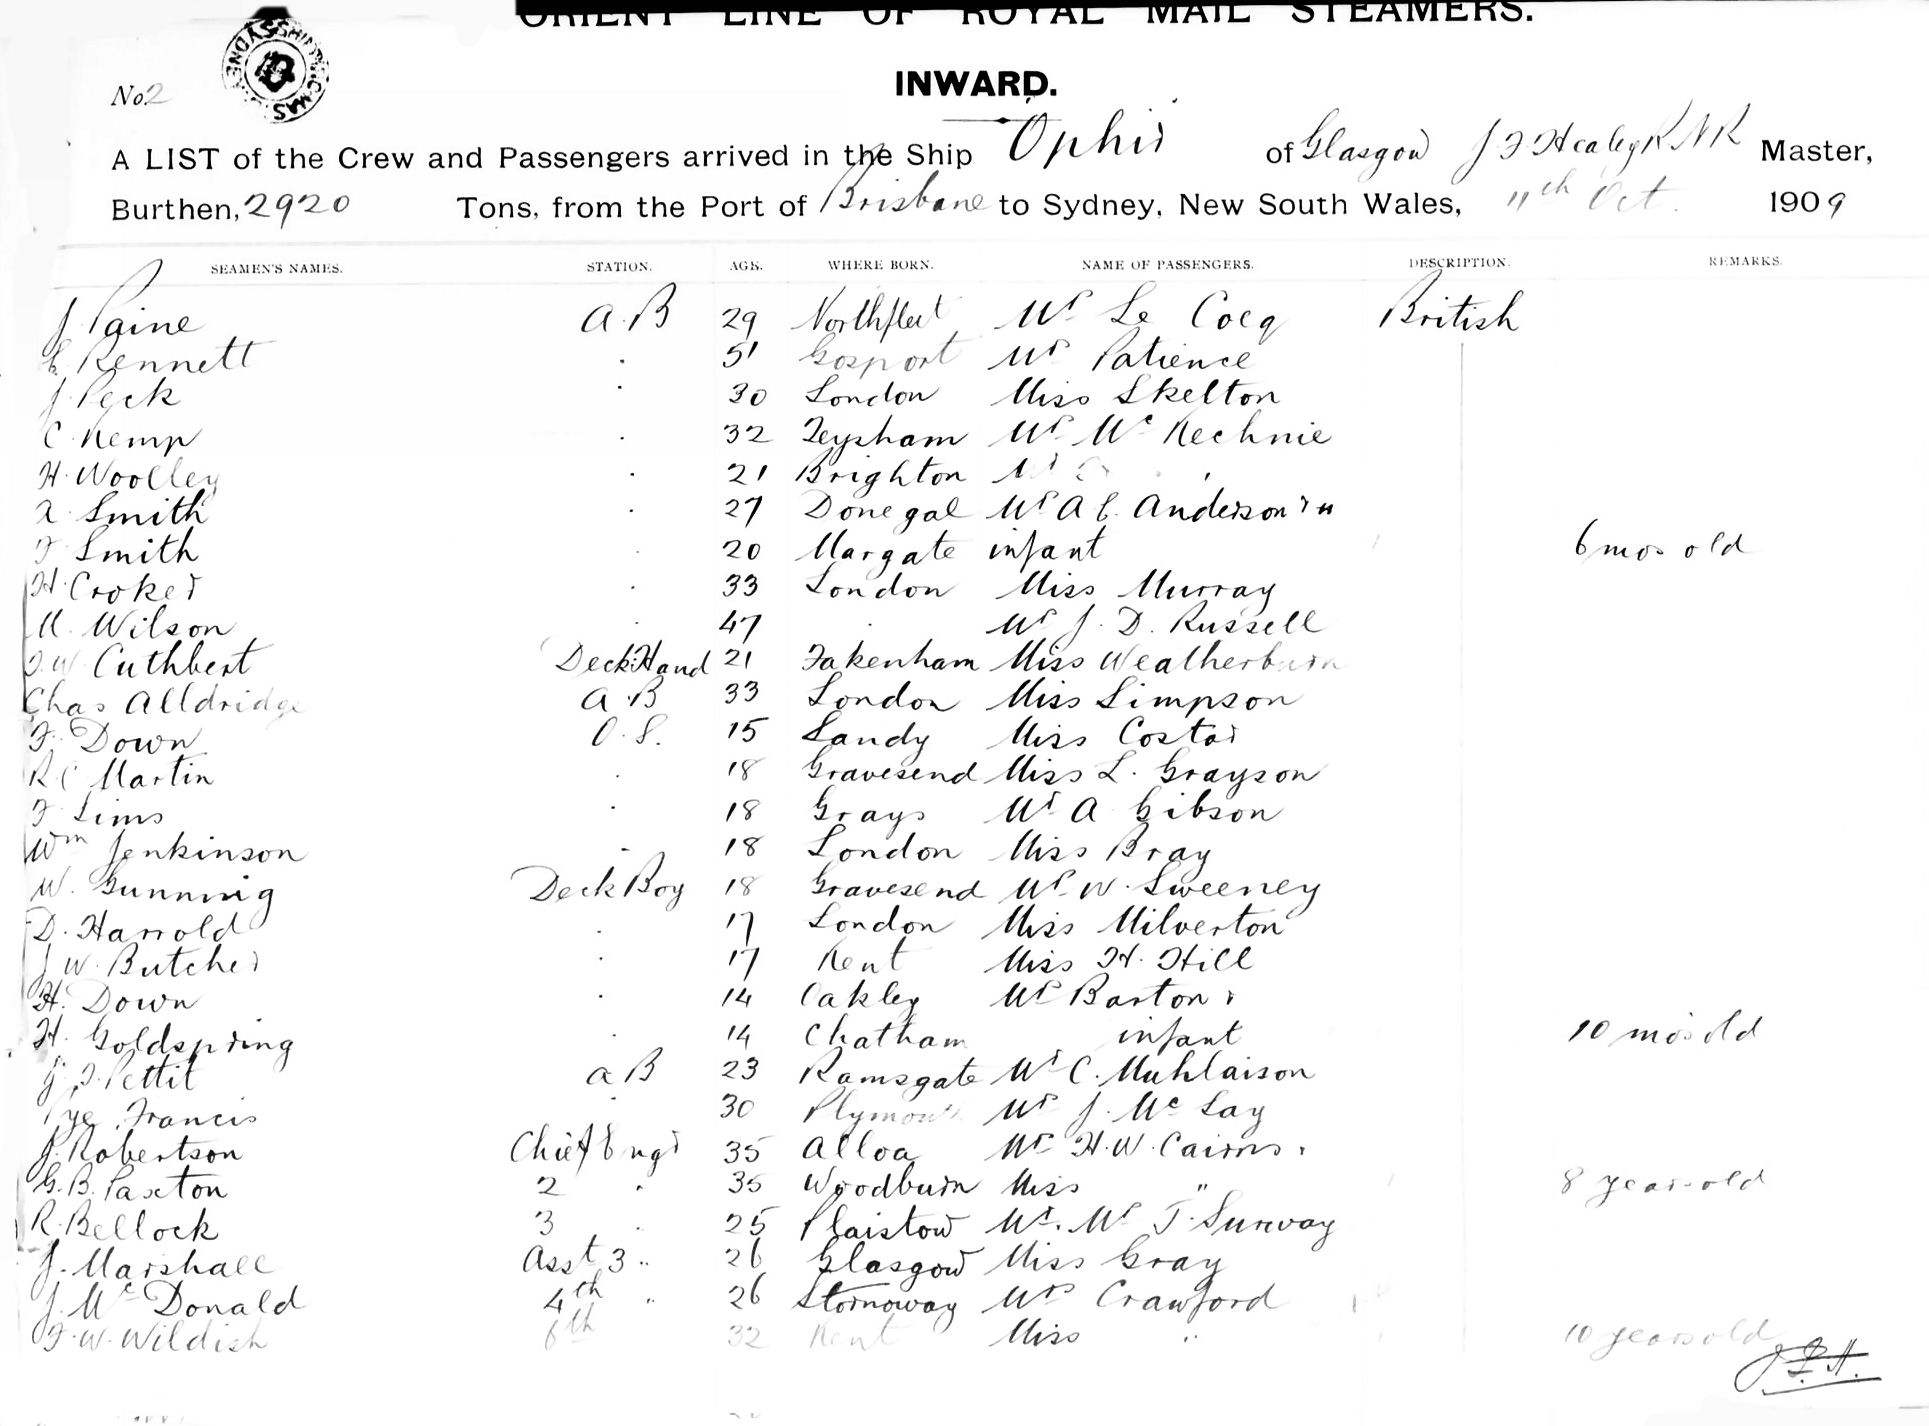 ORIENT LINE OF ROYAL MAIL STEAMERS.
No 2
INWARD.
A LIST of the Crew and Passengers arrived in the Ship Ophir of Glasgow J F Healey R N R Master,
Burthen, 2920 Tons, from the Port of Brisbane to Sydney, New South Wales, 11th Oct. 1909
SEAMEN'S NAMES. STATION. AGE. WHERE BORN. NAME OF PASSENGERS. DESCRIPTION. REMARKS.
J. Paine A.B 29 Northfleet Mr Le Cocq British
Kennett . 51 Gosport Mr Patience
J. Peck . 30 London Miss Skelton
C. Kemp . 32 Mr Mc Kechnie
H. Woolley . 21 Brighton
A. Smith . 27 Donegal Mr A. E. Anderson
F. Smith . 20 Margate infant 6 mos old
H. Croker . 33 London Miss Murray
W. Wilson . 47 . Mr J. D. Russell
Cuthbert Deck Hand 21 Fakenham Miss Weatherburn
Chas Alldridge A.B 33 London Miss Simpson
F. Down O.S. 15 Sandy Miss Costar
R.C Martin . 18 Gravesend Miss L. Grayson
F. Sims . 18 Grays Mr A Gibson
Wm Jenkinson . 18 London Miss Bray
W. Gunning Deck Boy 18 Gravesend Mr W. Sweeney
D. Harrold . 17 London Miss Milverton
J. W. Butcher . 17 Kent Miss H. Hill
H. Down . 14 Oakley Mr Barton
H. Goldspring . 14 Chatham infant 10 mos old
Pettit A B 23 Ramsgate Mr C. Muhlaison
Francis . 30 Plymouth Mr J. Mc Lay
J. Robertson Chief Engr 35 Alloa Mr H. W. Cairns
G. B. Paxton 2 . 35 Woodburn Miss " 8 years old
R. Bellock 3 . 25 Plaistow Mr. Mrs T. Surway
J. Marshall Asst 3 " 26 Glasgow Miss Gray
J. Mc Donald 4th " 26 Stornoway Mrs Crawford
F. W. Wildish 6th 32 Kent Miss " 10 years old
J F H.